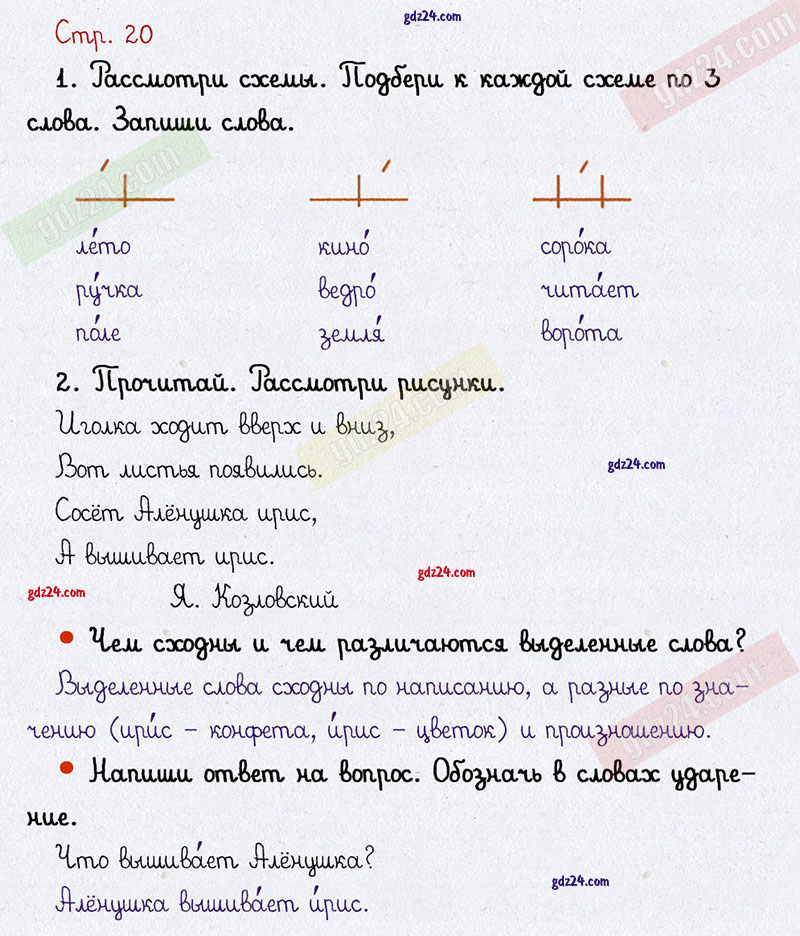 gdz24.com
Стр. 20
gdz24.com
1. Рассмотри схемы. Подбери к каждой схеме по 3
слова. Запиши слова.
gdz24.com
ле́то кино́ соро́ка
ру́чка ведро́ чита́ет
по́ле земля́ воро́та
2. Прочитай. Рассмотри рисунки.
Иголка ходит вверх и вниз,
gdz24.com
Вот листья появились.
gdz24.com
Сосёт Алёнушка ирис,
А вышивает ирис.
gdz24.com
gdz24.com
Я. Козловский
• Чем сходны и чем различаются выделенные слова?
Выделенные слова сходны по написанию, а разные по зна-
чению (ири́с - конфета, и́рис - цветок) и произношению.
gdz24.com
• Напиши ответ на вопрос. Обозначь в словах ударе-
ние.
Что вышива́ет Алёнушка?
gdz24.com
Алёнушка вышива́ет и́рис.